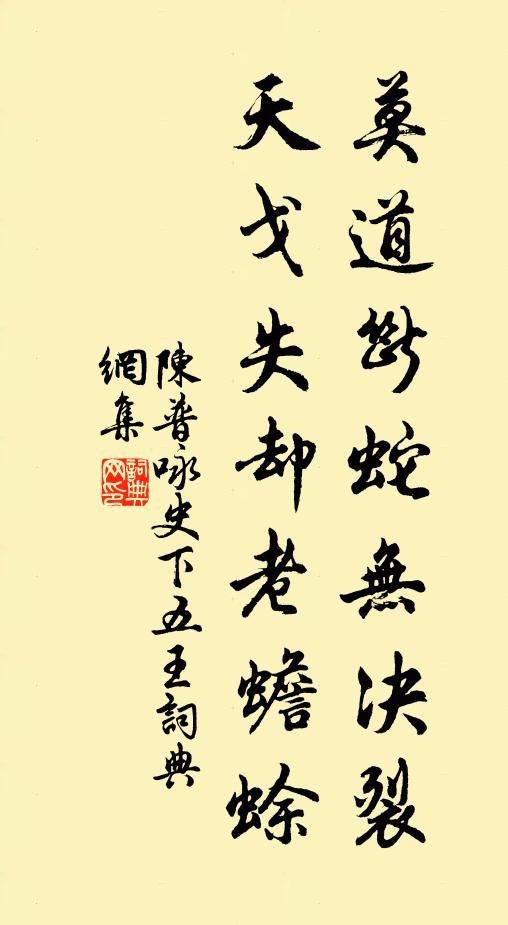 莫道斷蛇無決裂
天戈失卻老蟾蜍
陳普咏史下五王詞典
網集
詞典網印